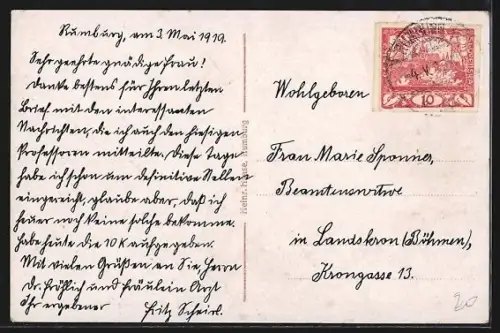 Rumburg, am 3 Mai 1919.
Sehr geehrte gnädige Frau!
Danke bestens für Ihren letzten
Brief mit den interessanten
Nachrichten, die ich auch den hiesigen
Professoren mitteilte. Diese Tage
habe ich schon um definitive Stellen
eingereicht, glaube aber, daß ich
heuer noch keine solche bekomme.
Habe heute die 10 K aufgegeben.
Mit vielen Grüßen an Sie, Herrn
Dr. Fröhlich und Fräulein Arzt
Ihr ergebener
Fritz Scheirl.
Rumburg
Wohlgeboren
Frau Marie Sponner,
Beamtenswitwe
in Landskron (Böhmen),
Krongasse 13.
10
20